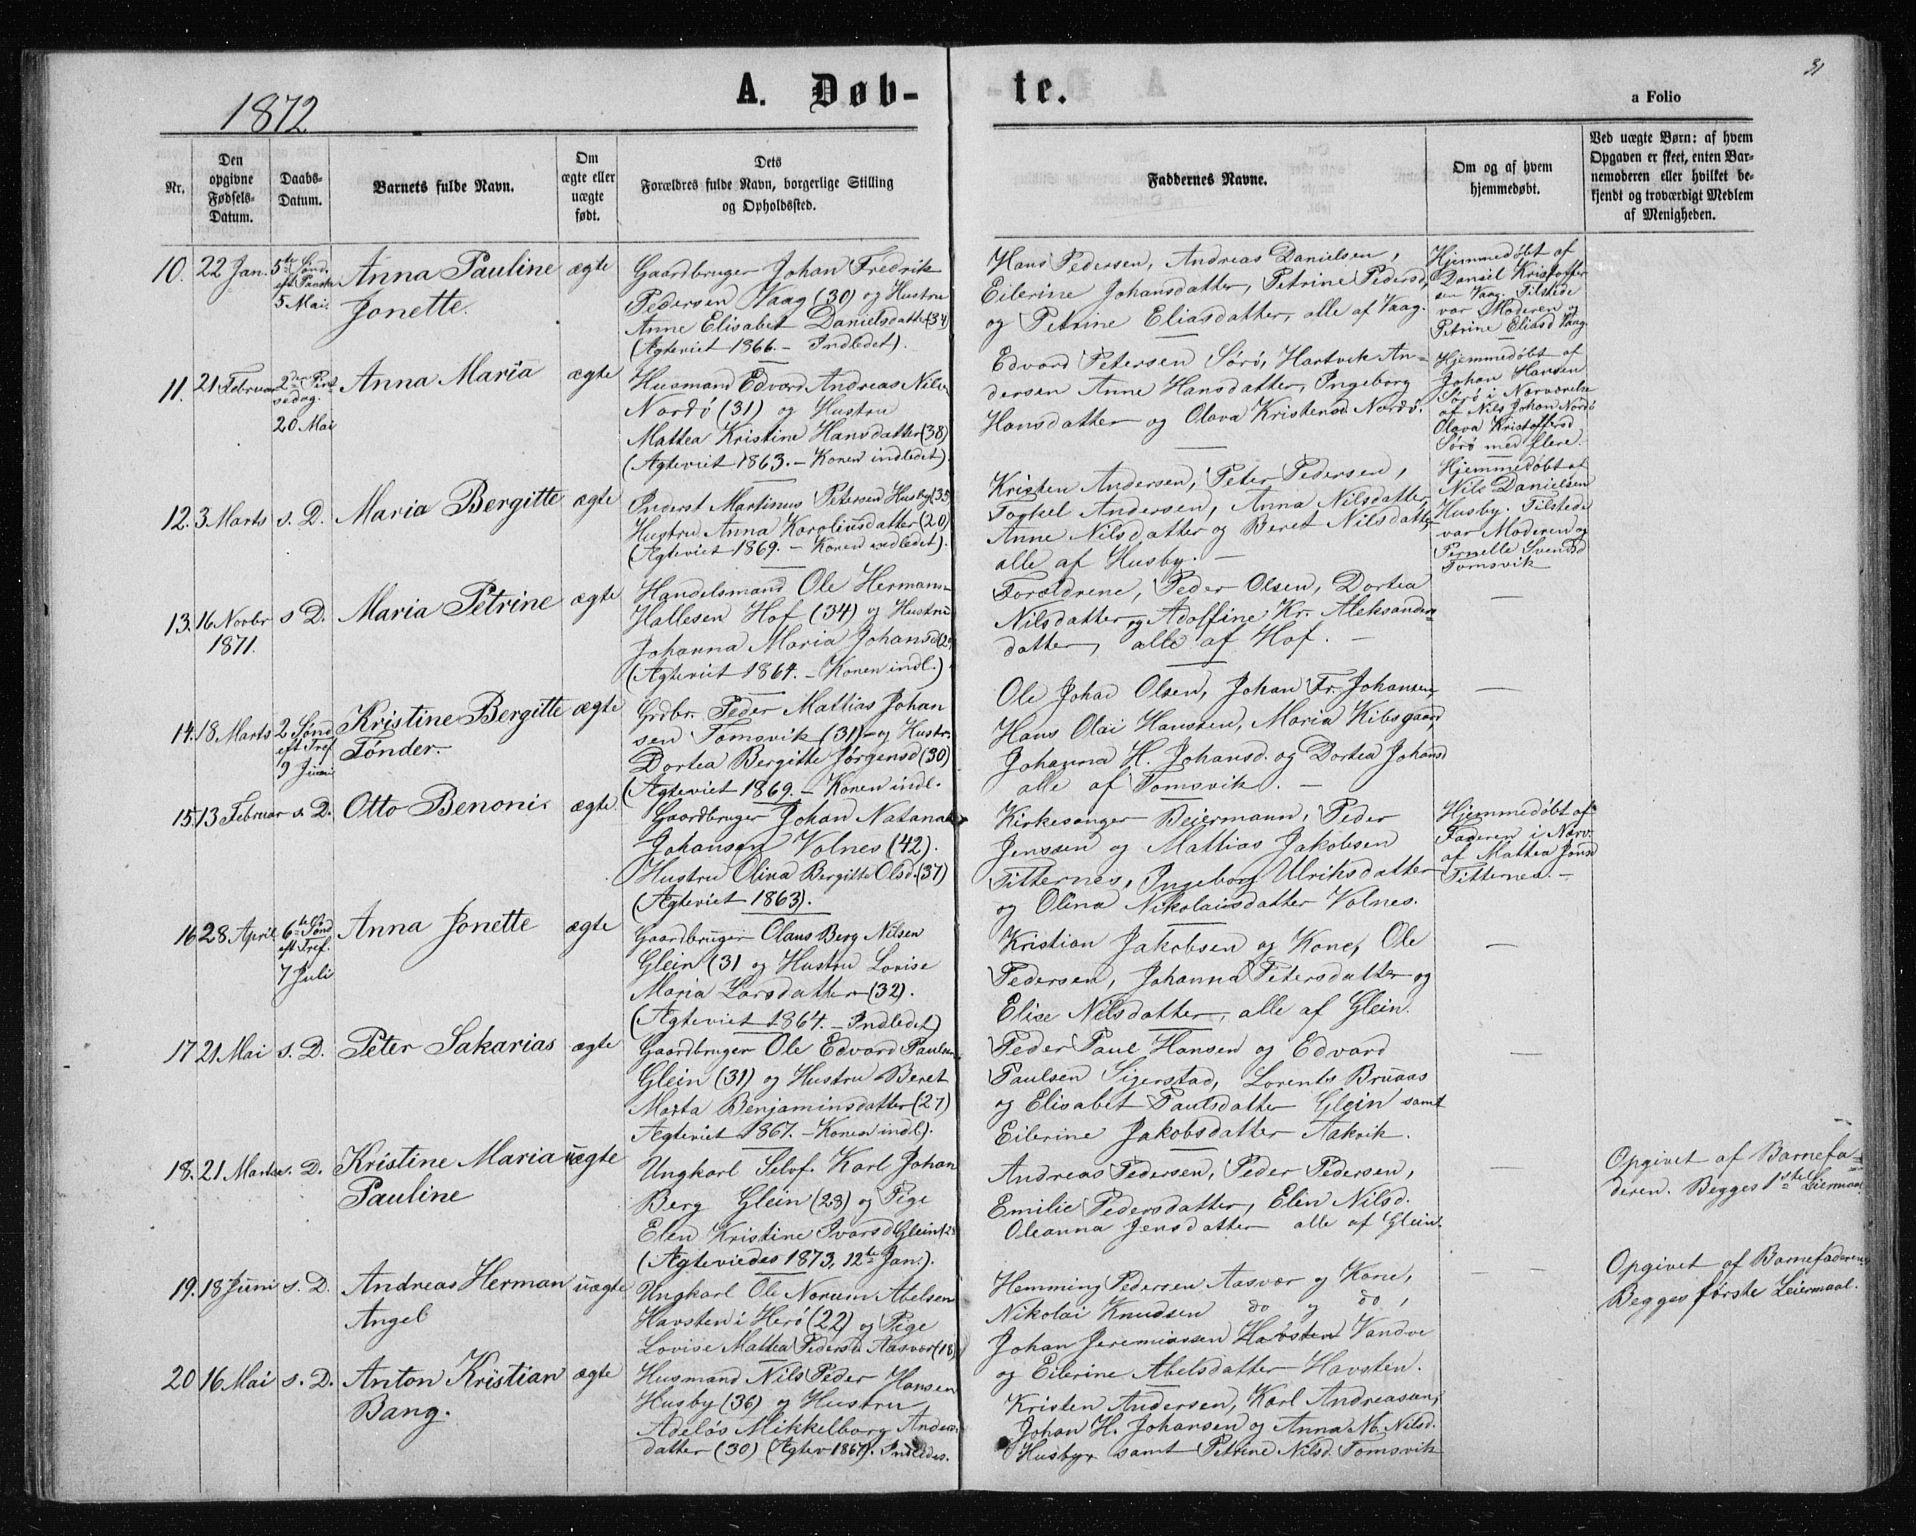 31
1872
A. Døb-
te.
a Folio
Nr.
Den opgivne Fødsels-Datum.
Daabs-Datum.
Barnets fulde Navn.
Om ægte eller uægte født.
Dets Forældres fulde Navn, borgerlige Stilling og Opholdssted.
Faddernes Navne.
Om og af hvem hjemmedøbt.
Ved uægte Børn: af hvem Opgaven er skeet, enten Barnemoderen eller hvilket bekjendt og troværdigt Medlem af Menigheden.
10. 22 Jan. 5te Sønd. eft Paaske 5 Mai.
Anna Pauline
Jonette.
ægte
Gaardbruger Johan Fredrik
Pedersen Vaag (30) og Hustru
Anne Elisabet Danielsdatter (34)
(Ægteviet 1866. – Indledet).
Hans Pedersen, Andreas Danielsen,
Eilerine Johansdatter, Petrine Pedersd,
og Petrine Eliasdatter, alle af Vaag.
Hjemmedøbt af
Daniel Kristoffer
sen Vaag. Tilstede
var Moderen og
Petrine Eliasd Vaag.
11. 21 Februar 2den Pint
sedag.
20 Mai
Anna Maria
ægte
Husmand Edvard Andreas Nils.
Nordö (31) og Hustru
Mattea Kristine Hansdatter (38)
(Ægteviet 1863. – Konen indledet)
Edvard Petersen Sörö, Hartvik An-
dersen Anne Hansdatter, Ingeborg
Hansdatter og Olava Kristensd Nordö.
Hjemmedøbt af
Johan Hansen
Sörö i Nærværelse
af Nils Johan Nordö
Olava Kristoffersd
Sörö med flere.
12. 3 Marts s. D.
Maria Bergitte
ægte
Inderst Martinus Petersen Husby (35)
Hustru Anna Karoliusdatter (20)
(Ægteviet 1869. – Konen indledet).
Kristen Andersen, Peter Pedersen,
Torkel Andersen, Anna Nilsdatter,
Anne Nilsdatter og Beret Nilsdatter
alle af Husby. –
Hjemmedøbt af
Nils Danielsen
Husby. Tilstede
var Moderen og
Pernelle Svendsd
Tomsvik
13. 16 Novbr s D.
1871.
Maria Petrine
ægte
Handelsmand Ole Hermans-
Hallesen Hof (34) og Hustru
Johanna Maria Johansd
(Ægteviet 1864. – Konen indl.)
Forældrene, Peder Olsen, Dortea
Nilsdatter og Adolfine Kr. Aleksanders
datter, alle af Hof. –
–
14. 18 Marts 2 Sönd
eft Tref
9 Juni
Kristine Bergitte
Tønder.
ægte
Grdbr. Peder Mattias Johan
sen Tomsvik (31) – og Hustr.
Dortea Bergitte Jørgensd (30)
(Ægteviet 1869. – Konen indl.
Ole Johad Olsen, Johan Fr. Johansen
Hans Olai Hansen, Maria Kibsgaard,
Johanna H. Johansd. og Dortea Johansd
alle af Tomsvik. –
–
15. 13 Februar s. D.
Otto Benoni.
ægte
Gaardbruger Johan Natanael
Johansen Volnes (42).
Hustru Olina Bergitte Olsd. (37)
(Ægteviet 1863).
Kirkesanger Beiermann, Peder
Jenssen og Mattias Jakobsen
Titternes, Ingeborg Ulriksdatter
og Olina Nikolaisdatter Volnes.
Hjemmedøbt af
Faderen i Nærv.
af Mattea Jonsd
Titternes. –
16 28 April 6te Sönd
eft Tref.
7 Juli
Anna Jonette
ægte
Gaardbruger Olaus Berg Nilsen
Glein (31 og Hustru Lovise
Maria Larsdatter (32).
(Ægteviet 1864. – Indledet)
Kristian Jakobsen og Kone, Ole
Pedersen, Johanna Petersdatter og
Elise Nilsdatter, alle af Glein.
–
17 21 Mai s. D.
Peter Sakarias
ægte
Gaardbruger Ole Edvard Paulsen
Glein (31) og Hustru Beret
Marta Benjaminsdatter (27)
Ægteviet 1867. – Konen indl).
Peder Paul Hansen og Edvard
Paulsen Sigerstad, Lorents Bruaas
og Elisabet Paulsdatter Glein samt
Eilerine Jakobsdatter Aakvik.
–
18. 21 Marts s. D.
Kristine Maria
Pauline
uægte
Ungkarl Selvf. Karl Johan
Berg Glein (28) og Pige
Elen Kristine Ivarsd Glein
(Ægteviedes 1873, 12te Jan.).
Andreas Pedersen, Peder Pedersen,
Emilie Pedersdatter, Elen Nilsd.
Oleanna Jensdatter alle af Glein.
–
Opgivet af Barnefa-
deren. Begges 1ste Leiermaal.
19. 18 Juni s. D.
Andreas Herman
Angel
uægte
Ungkarl Ole Norum Abelsen
Havsten i Herö (22) og Pige
Lovise Mattea Pedersd. Aasvær (18)
Hemming Pedersen Aasvær og Kone,
Nikolai Knudsen do og do,
Johan Jeremiassen Havsten Vandve
og Eilerine Abelsdatter Havsten.
– –
Opgivet af Barnefaderen
Begges første Leiermaal.
20 16 Mai s. D.
Anton Kristian
Bang.
ægte
Husmand Nils Peder Hansen
Husby (36) og Hustru
Adelös Mikkelborg Anders
datter (30) (Ægtev 1867). Indledes.
Kristen Andersen, Karl Andreasen,
Johan H. Johansen og Anna M. Nilsd.
Husby, samt Petrine Nilsd. Tomsvik